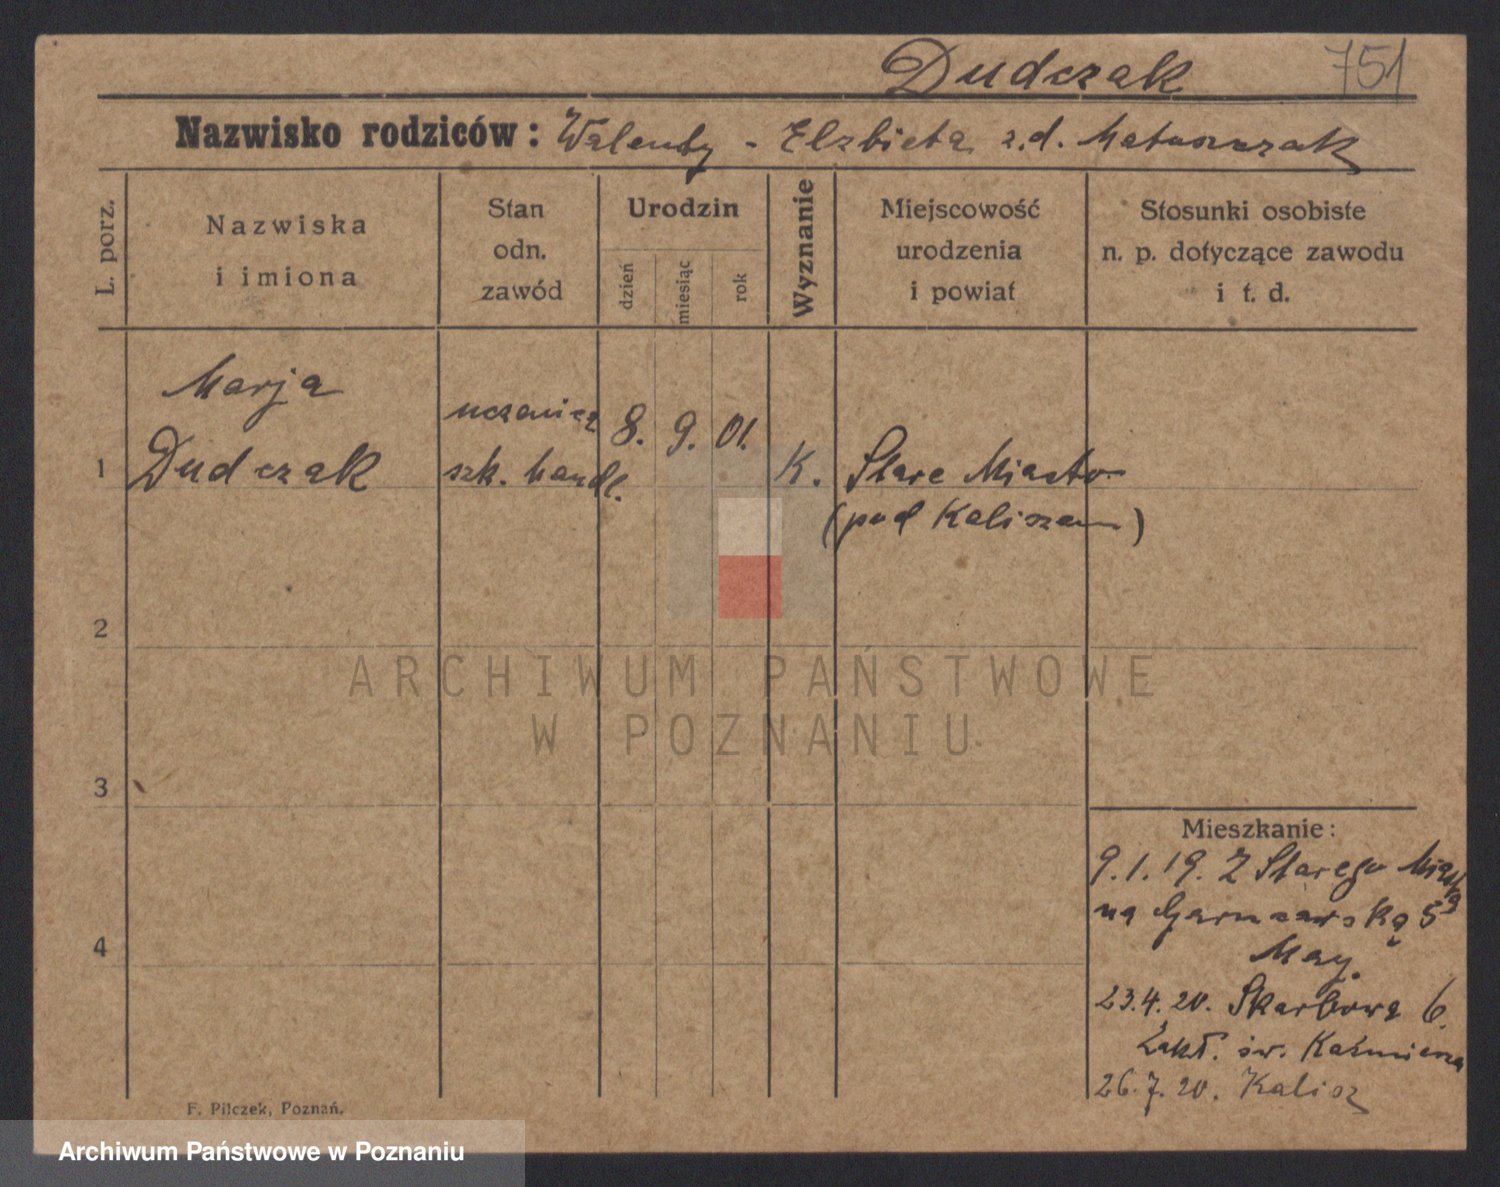 Dudczak 751
Nazwisko rodziców: Walenty - Elzbieta z.d. Matuszczak
L. porz.
Nazwiska
i imiona
Stan
odn.
zawód
Urodzin
dzień
miesiąc
rok
Wyznanie
Miejscowość
urodzenia
i powiat
Stosunki osobiste
n. p. dotyczące zawodu
i t. d.
1
Marja
Dudczak
uczenica
szk. handl.
8. 9. 01.
K.
Stare Miasto
(pod Kaliszem)
2
3
4
ARCHIWUM PAŃSTWOWE
W POZNANIU
Mieszkanie:
9.1.19. Z Starego Miasta
na Garncarską 5
May.
23.4.20. Skarbowa 6.
Zakł. św. Kaźmierza
26.7.20. Kalisz
F. Pilczek, Poznań.
Archiwum Państwowe w Poznaniu